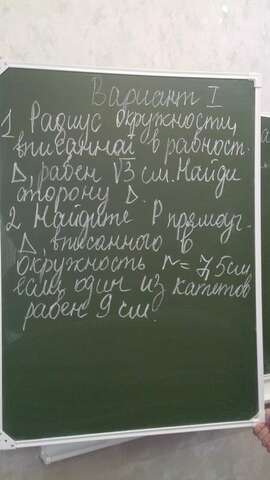 Вариант I
1. Радиус окружности,
вписанной в равност.
Δ, равен √3 см. Найди
сторону Δ.
2. Найдите P прямоуг.
Δ, вписанного в
окружность r = 7,5 см
если один из катетов
равен 9 см.